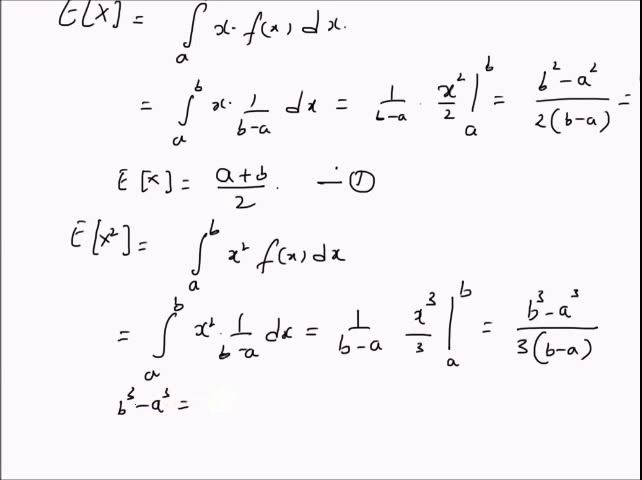 E[X] = ∫ₐ x· f(x) dx.
= ∫ₐᵇ x· 1/(b-a) dx = 1/(b-a) · x²/2 |ₐᵇ = (b²-a²)/(2(b-a)) =
E[x] = (a+b)/2. — ①
E[X²] = ∫ₐᵇ x² f(x) dx
= ∫ₐᵇ x² · 1/(b-a) dx = 1/(b-a) x³/3 |ₐᵇ = (b³-a³)/(3(b-a))
b³-a³ =